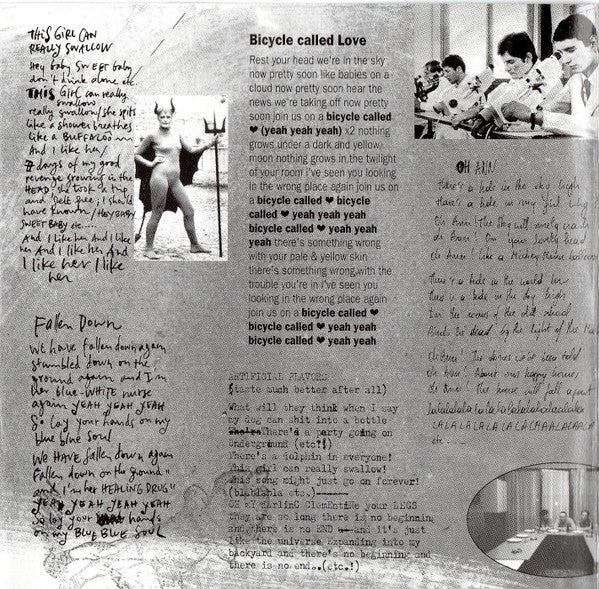 THIS GIRL CAN
REALLY SWALLOW
Hey baby SWEET baby
don't think alone etc.
THIS GIRL can really
swallow
really swallow/she spits
like a shower breathes
like a BUFFALOO
And I like her/
7 days of my good
revenge growing in the
HEAD she took a trip
and felt free; I should
have known/HEY BABY
SWEET BABY etc.....
And I like her And I like
her And I like her And
I like her I like
her
Fallen Down
We have fallen down again
stumbled down on the
ground again and I'm
her blue-WHITE nurse
again YEAH YEAH YEAH
So lay your hands on my
blue blue soul
We HAVE fallen down again
Fallen down on the ground
and I'm her HEALING DRUG
YEAH YEAH YEAH YEAH
So lay your hands
on my BLUE BLUE SOUL
Bicycle called Love
Rest your head we're in the sky
now pretty soon like babies on a
cloud now pretty soon hear the
news we're taking off now pretty
soon join us on a bicycle called
❤ (yeah yeah yeah) x2 nothing
grows under a dark and yellow
moon nothing grows in the twilight
of your room i've seen you looking
in the wrong place again join us on
a bicycle called ❤ bicycle
called ❤ yeah yeah yeah
bicycle called ❤ yeah yeah
yeah there's something wrong
with your pale & yellow skin
there's something wrong with the
trouble you're in i've seen you
looking in the wrong place again
join us on a bicycle called ❤
bicycle called ❤ yeah yeah
bicycle called ❤ yeah yeah
ARTIFICIAL FLAVORS
(taste much better after all)
What will they think when I say
my dog can shit into a bottle
There's a party going on
Underground (etc!)
There's a dolphin in everyone!
This girl can really swallow!
This song might just go on forever!
(blablabla etc.)
OH MY DARLING CLEMENTINE your LEGS
they are so long there is no beginning
and there is no END and it's just
like the universe expanding into my
backyard and there's no beginning and
there is no end..(etc.!)
OH ANN
There's a hole in the sky high
There's a hole in my
Oh Ann! The sky will
Oh Ann! On your lovely head
Oh Ann! Like a Mickey Mouse
There's a hole in the world
There's a hole in the sky high
of the old
by the light of the
Oh Ann! The stories we've been told
Oh Ann! About our happy
Oh Ann! This house will fall apart
lalalalala
LALALALALA
etc